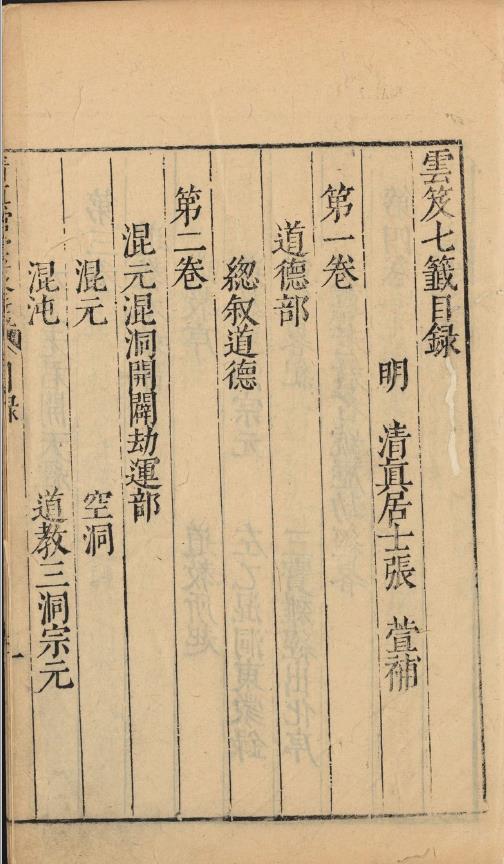 雲笈七籤目録
明　清真居士張　萱補
第一卷
道德部
總叙道德
第二卷
混元混洞開闢劫運部
混元　空洞
混沌　道教三洞宗元
目録
一